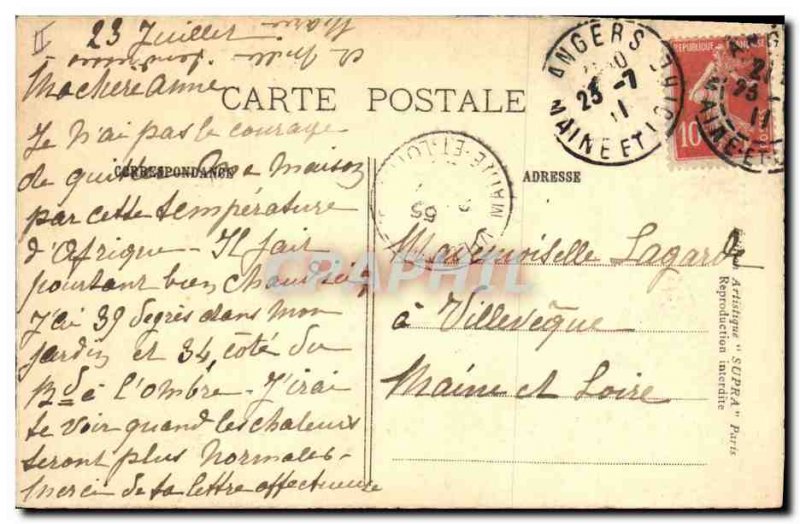 II
23 Juillet
Ma chère Anne
CARTE POSTALE
Je n'ai pas le courage
CORRESPONDANCE
de quitter ma maison
par cette température
d'Afrique - Il fait
pourtant bien chaud ici,
J'ai 39 degrés dans mon
jardin et 34, côté du
Bd à l'ombre - J'irai
te voir quand les chaleurs
seront plus normales -
Merci de ta lettre affectueuse
Marie
ADRESSE
Mademoiselle Lagarde
à Villevêque
Maine et Loire
ANGERS
23 -7
11
MAINE ET LOIRE
REPUBLIQUE FRANCAISE
10
ANGERS
23
11
MAINE ET
MAINE-ET-LOIRE
55
CPAPHIL
Artistique "SUPRA" Paris
Reproduction interdite